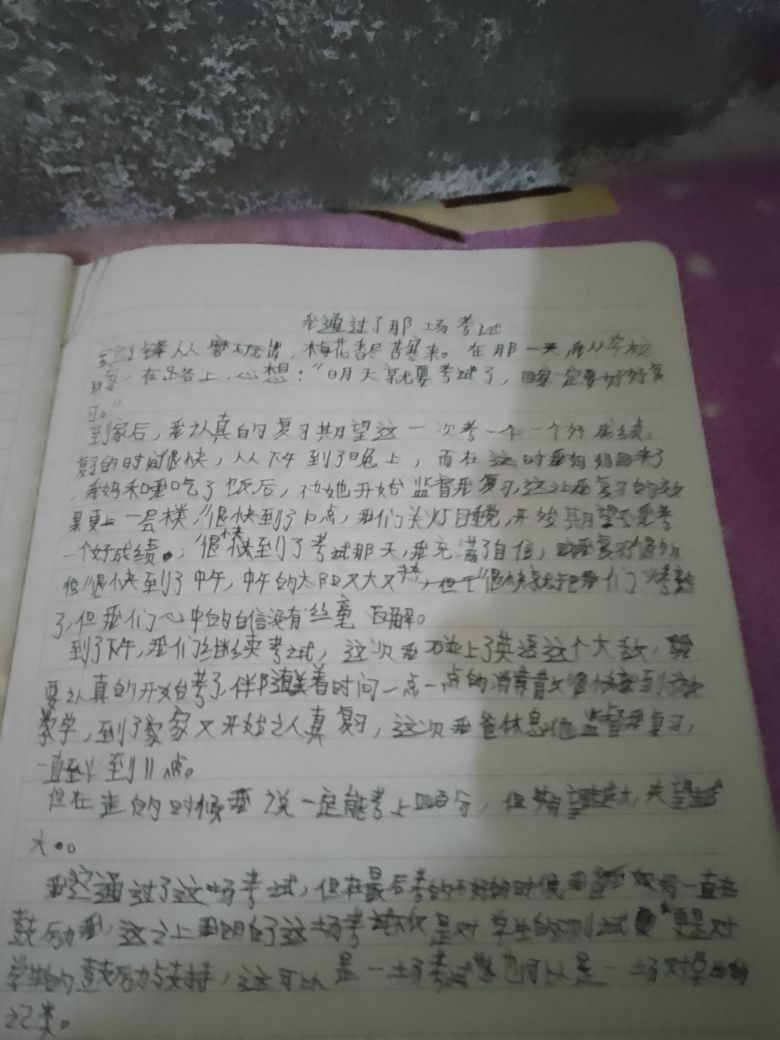 我通过了那场考试
宝剑锋从磨砺出，梅花香自苦寒来。在那一天，我从学校
在路上，心想："明天就要考试了，一定要好好复
习。"
到家后，我认真的复习期望这一次考一个好成绩，
复习的时间很快，从下午到了晚上，而在这时我妈妈回来了
，我妈和我吃了饭后，她开始监督我复习，这让我复习的效
果更上一层楼，很快到了10点，我们关灯睡觉，开始期望考
一个好成绩。，很快到了考试那天，我充满了自信，
但很快到了中午，中午的太阳又大又，但我们
了，但我们心中的自信没有丝毫瓦解。
到了下午，我们继续考试，这次我碰上了英语这个大敌，
要认真的开始考了，伴随着时间一点一点的消
学，到了家家又开始认真复习，这次我爸休息他监督我复习，
一直到11点。
但在走的时候我说一定能考上四百分，但期望越大，失望越
大。。
我通过了这场考试，但在最后考的不好的时候我一直在
鼓励我，这让我明白了这场考试不仅是对学生的测试更是对
学生的鼓励与支持，这可以是一场考试也可以是一场对